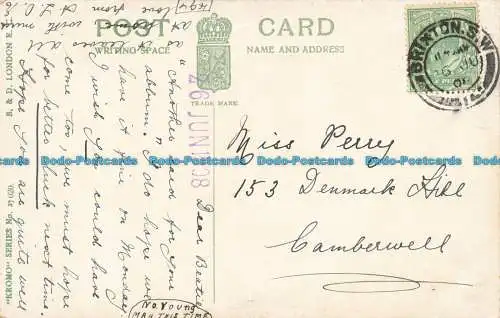 POST CARD
WRITING SPACE
NAME AND ADDRESS
TRADE MARK
B. & D. LONDON E.
"KROMO" SERIES No.
BRIXTON. S.W
26 JUN 1908
Dear Beatie
"Another"
card for your
album. I do hope we
have it fine on Monday
I wish you could have
come too, we must hope
for better luck next time.
Hope you are quite well
as it leaves all
at home with much
love from
No. Young
MAN THIS TIME
Miss Perry
153 Denmark Hill
Camberwell
Dodo-Postcards Dodo-Postcards Dodo-Postcards Dodo-Postcards Dodo-Postcards